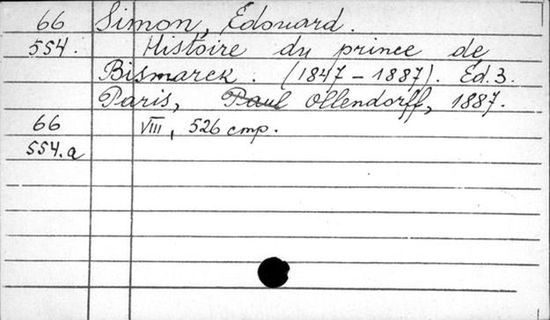 66 Simon, Édouard.
554. Histoire du prince de
Bismarck. (1847-1887). Éd. 3.
Paris, Paul Ollendorff, 1887.
66 VIII, 526 cmp.
554.a